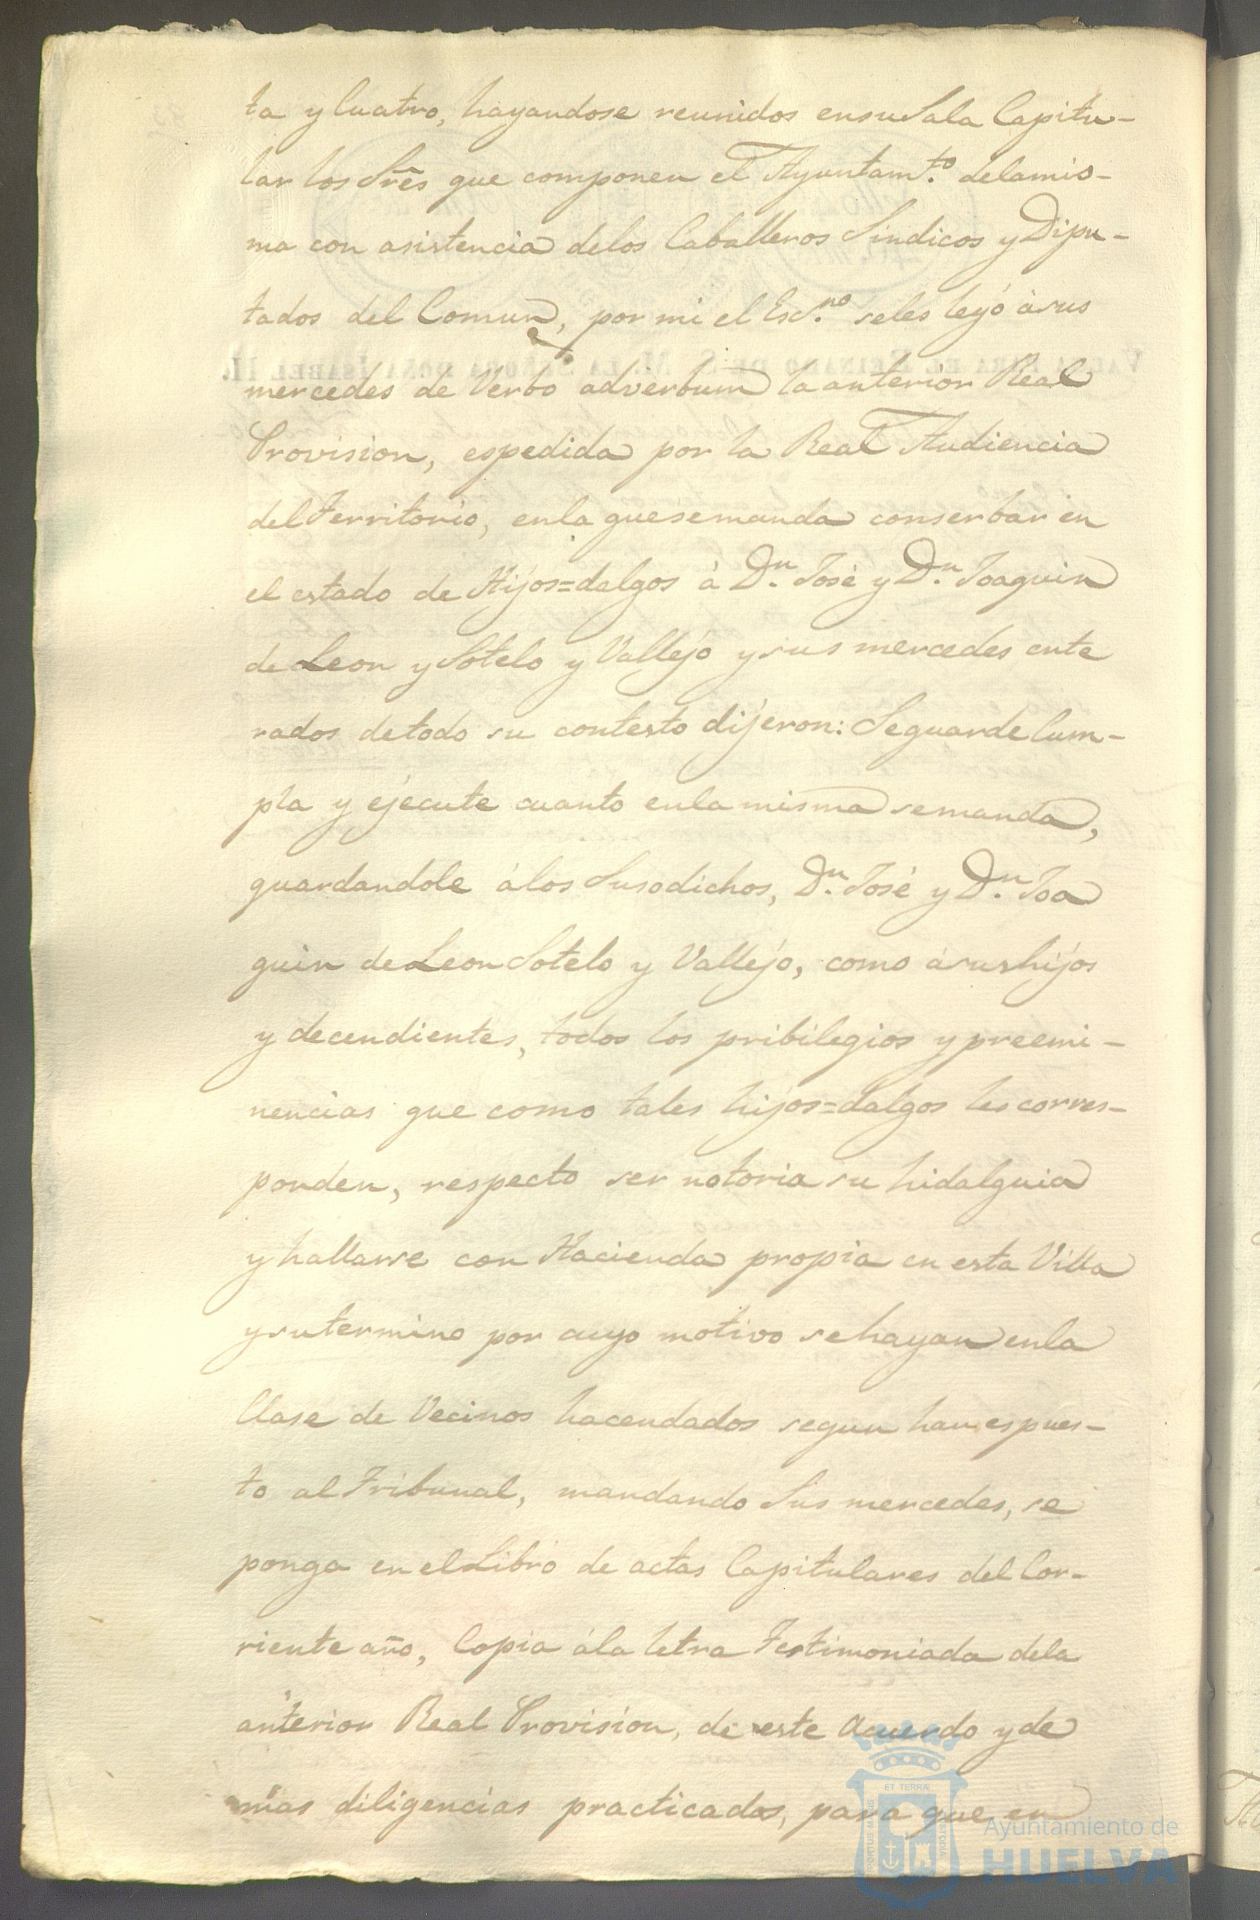 ta y Cuatro, hayandose reunidos en su Sala Capitu-
lar los Sres que componen el Ayuntam.to de la mis-
ma con asistencia de los Caballeros Sindicos y Dipu-
tados del Comun, por mi el Es.no se les leyó à sus
mercedes de Verbo adverbum la anterior Real
Provision, espedida por la Real Audiencia
del Territorio, en la que se manda conserbar en
el estado de Hijos=dalgos à D.n José y D.n Joaquin
de Leon y Sotelo y Vallejo y sus mercedes ente
rados de todo su contesto dijeron: Se guarde Cum-
pla y ejecute cuanto en la misma se manda,
guardandole á los Susodichos, D.n José y D.n Joa
quin de Leon Sotelo y Vallejo, como á sus hijos
y decendientes, todos los pribilegios y preemi-
nencias que como tales hijos=dalgos les corres-
ponden, respecto ser notoria su hidalguia
y hallarse con Hacienda propia en esta Villa
y su termino por cuyo motivo se hayan en la
Clase de Vecinos hacendados segun han espues-
to al Tribunal, mandando Sus mercedes, se
ponga en el Libro de actas Capitulares del Cor-
riente año, Copia á la letra Testimoniada de la
anterior Real Provision, de este Acuerdo y de
mas diligencias practicadas, para que en
VALGA PARA EL REINADO DE S. M. LA SEÑORA DOÑA ISABEL II.
ET TERRA
Ayuntamiento de
HUELVA